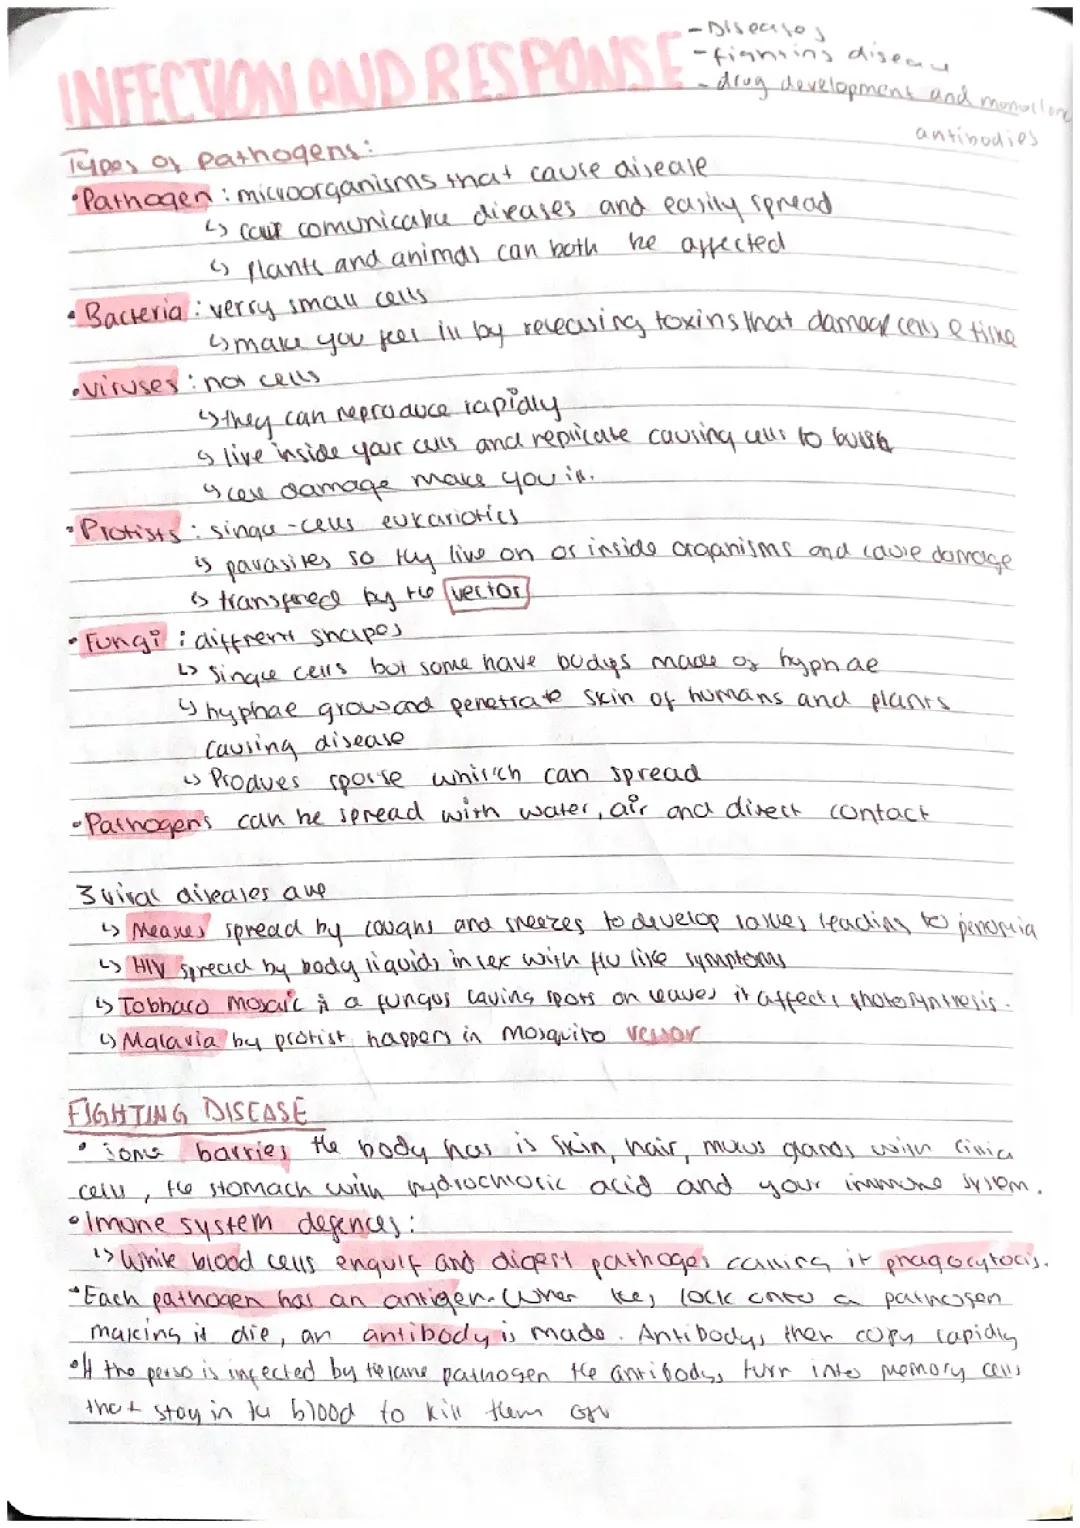 INFECTION AND RESPONSE
- Diseases
- fighting disease
- drug development and monoclon
antibodies
Types of pathogens:
• Pathogen : microorganisms that cause disease
↳ comunicable diseases and easily spread
↳ plants and animals can both be affected
• Bacteria : verry small cells
↳ make you feel ill by releasing toxins that damage cells & tissue
• Viruses : not cells
↳ they can reproduce rapidly
↳ live inside your cells and replicate causing cells to burst
↳ cell damage make you ill.
• Protists : single-cells eukariotics
↳ parasites so they live on or inside organisms and cause damage
↳ transfered by the vector
• Fungi : diffrent shapes
↳ single cells but some have bodys made of hyphae
↳ hyphae grow and penetrate skin of humans and plants
causing disease
↳ Produes which can spread
• Pathogens can be spread with water, air and direct contact
3 viral diseases are
↳ spread by coughs and sneezes to develop leading to
↳ HIV spread by body liquids in sex with flu like symptoms
↳ Tobbaco mosaic a fungus causing spots on leaves it affects photosynthesis.
↳ Malaria by protist happens in mosquito
FIGHTING DISEASE
• barries the body has is skin, hair, mucus glands with
cells, the stomach with hydrochloric acid and your immune system.
• Imune system defences:
↳ White blood cells engulf and digest pathoges calling it phagocytocis.
• Each pathogen has an antigen. When lock onto a pathogen
making it die, an antibody is made. Antibodys then copy rapidly
• If the perso is infected by pathogen the antibodys turn into memory cells
that stay in the blood to kill them